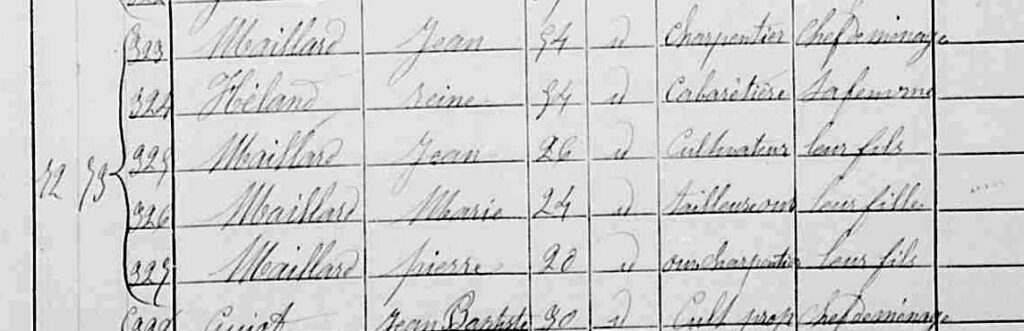 323 Maillard Jean 54 id Charpentier Chef de ménage
324 Héland reine 54 id Cabarétière sa femme
325 Maillard Jean 26 id Cultivateur leur fils
72 73 326 Maillard Marie 24 id tailleuse our leur fille
327 Maillard pierre 20 id our charpentier leur fils
Guiot Jean Baptiste 30 id Cult prop Chef de ménage